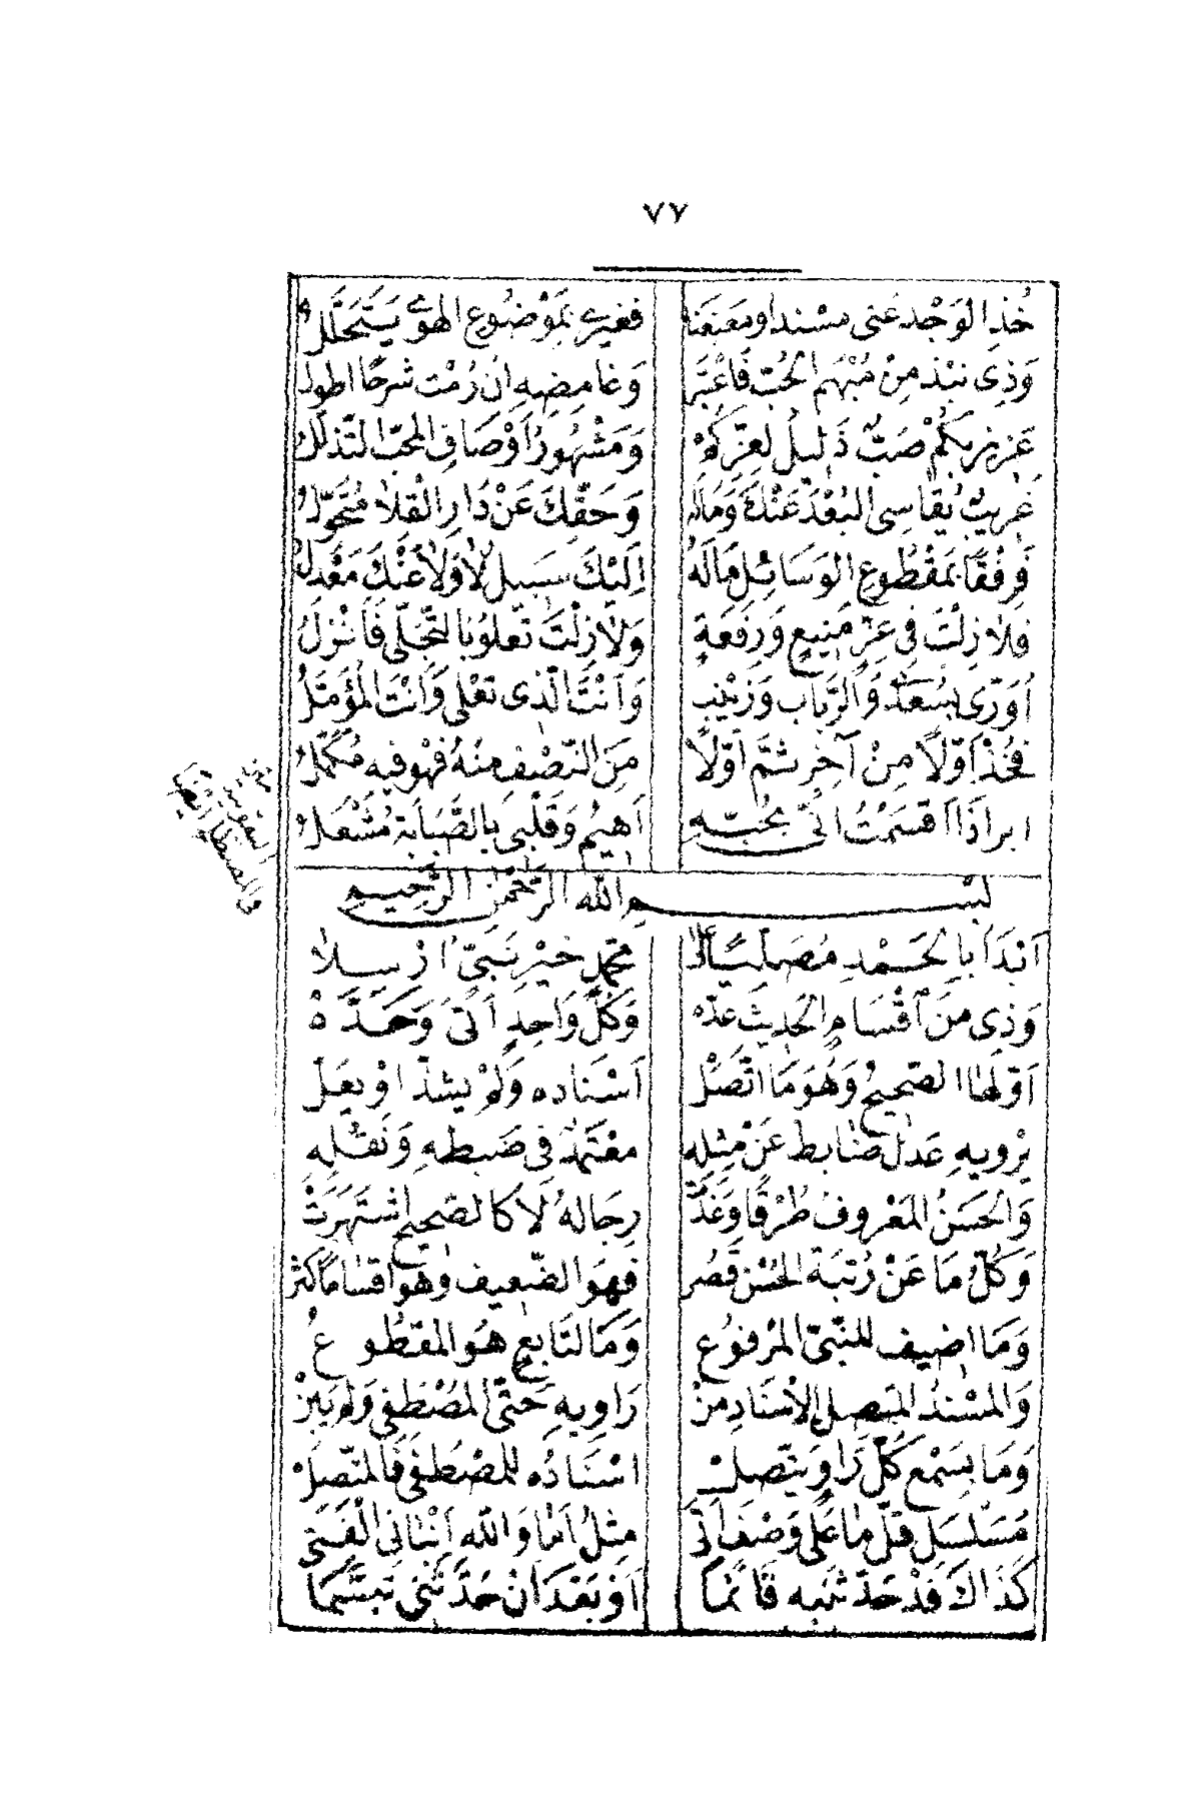 ٧٧
خُذِ الوَجْدِ عَنّى مسْندا ومعَنعَنا فغيرى بمَوْضُوع الهوى يتَحَلَّلُ
وَذِى نبذ مِنْ مُبْهَم الحُبّ فَاعْتَبر وَغامِضِهِ اِنْ رُمْت شرحًا اطولُ
عَزيز بكُمْ صَبٌّ ذَليل لعِزّكم وَمَشْهُورُ اَوْصَافِ المحبّ التّذلّل
غَريبٌ يُقاسِى البُعْدَ عَنْكَ وَمَالَه وَحَقّكَ عَنْ دَارِ القِلا مُتحَوّلُ
فَرِفْقًا بمَقْطُوعِ الوَسَائِلِ مَالَهُ اِلَيْكَ سَبيل لا وَلا عَنْكَ مَعْدِلُ
فلا زِلْتَ فى عِزٍّ مَنِيعٍ وَرِفعَةٍ وَلا زِلْتَ تَعلو بالتّجَنّى فَاَنْزِلُ
اُوَرّى بسُعدَى وَالرَّبابِ وَزَيْنَبٍ وَاَنْتَ الّذى تعْنى وَاَنْتَ المُؤمّلُ
فَخُذْ اَوّلاً مِنْ آخِرٍ ثمَّ اَوّلاً مِنَ النّصْفِ مِنْهُ فهْو فيه مُكَمَّلُ
ابر اذَا اقسَمْتُ انّى بحُبّهِ اَهيمُ وَقَلْبى بالصَّبَابَة مُشْعَلُ
بسْم الله الرّحْمٰن الرّحيم
اَبْدَأ بالحَمْدِ مُصَلّيًا عَلى محَمّدٍ خَيْرِ نَبىّ اُرْسِلا
وَذِى مِنَ اَقْسَامِ الحَدِيث عدّه وَكلّ وَاحِدٍ اَتى وَحَدّهْ
اَوّلهَا الصّحيحُ وَهُوَ مَا اتّصَلْ اَسْناده وَلَمْ يشذّ اوْ يعَلّ
يرْويهِ عَدل ضَابط عَنْ مِثلِهِ معْتَمَد فى ضَبطهِ وَنَقْلِهِ
وَالحَسَنُ المَعْرُوف طُرْقًا وَغَدَتْ رِجَالهُ لا كالصّحيح اشتَهَرَتْ
وَكُلّ مَا عَنْ رُتبَة الحُسْن قَصُر فهوَ الضّعيف وهو اقسَاما كثر
وَمَا اضيف للنّبىّ المرْفوُع وَمَا لتَابعٍ هوَ المقطُوعُ
وَالمسْندُ المتصل الاسْنَادِ مِنْ رَاوِيهِ حَتّى المُصْطفى وَلم يَبنْ
وَمَا بسَمْع كُلّ رَاوٍ يَتّصِلْ اسْنَادُه للمصْطَفى فَالمتّصِلْ
مُسَلسَل قلْ ما عَلى وَصْف اَتى مثلُ اَمَا وَالله اَنْبانى الفَتى
كَذَاكَ قدْ حَدّثنيه قَائمًا اَوْ بَعْدَ انْ حَدّثنى تبسّمَا